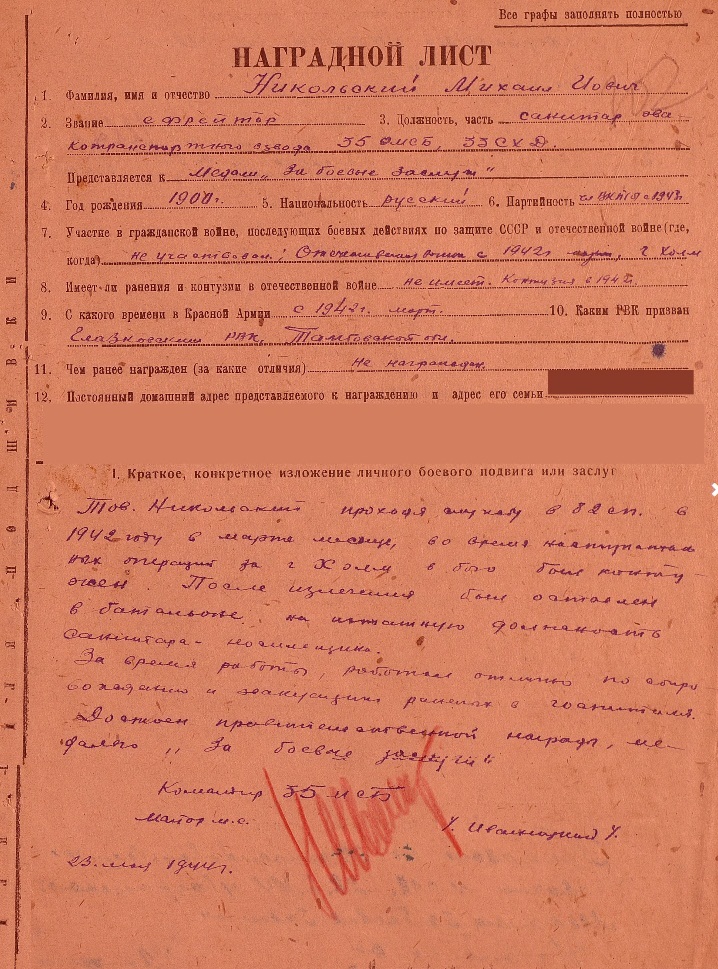 Все графы заполнять полностью
НАГРАДНОЙ ЛИСТ
1. Фамилия, имя и отчество Никольский Михаил Иович
2. Звание ефрейтор 3. Должность, часть санитар эва-
котранспортного взвода 35 ОМСБ, 33 СХД.
Представляется к Медали „За боевые заслуги"
4. Год рождения 1900г. 5. Национальность русский 6. Партийность чл ВКП(б) с 1943г
7. Участие в гражданской войне, последующих боевых действиях по защите СССР и отечественной войне (где,
когда) не участвовал; Отечественная война с 1942г март, г Холм
8. Имеет-ли ранения и контузии в отечественной войне не имеет. Контузия в 1942г.
9. С какого времени в Красной Армии с 1942г. март. 10. Каким РВК призван
Глазковским РВК, Тамбовской обл.
11. Чем ранее награжден (за какие отличия) Не награжден.
12. Постоянный домашний адрес представляемого к награждению и адрес его семьи
I. Краткое, конкретное изложение личного боевого подвига или заслуг
Тов. Никольский проходя службу в 82 сп. в
1942 году в марте месяце, во время наступатель
ных операций за г Холм в бою был конту-
жен. После излечения был оставлен
в батальоне на штатную должность
Санитара-носильщика.
За время работы, работал отлично по сопро
вождению и эвакуации раненых в госпитали.
Достоен правительственной награды, ме-
далью „За боевые заслуги"
Командир 35 МСБ
Майор м.с.
23. мая 1944г.